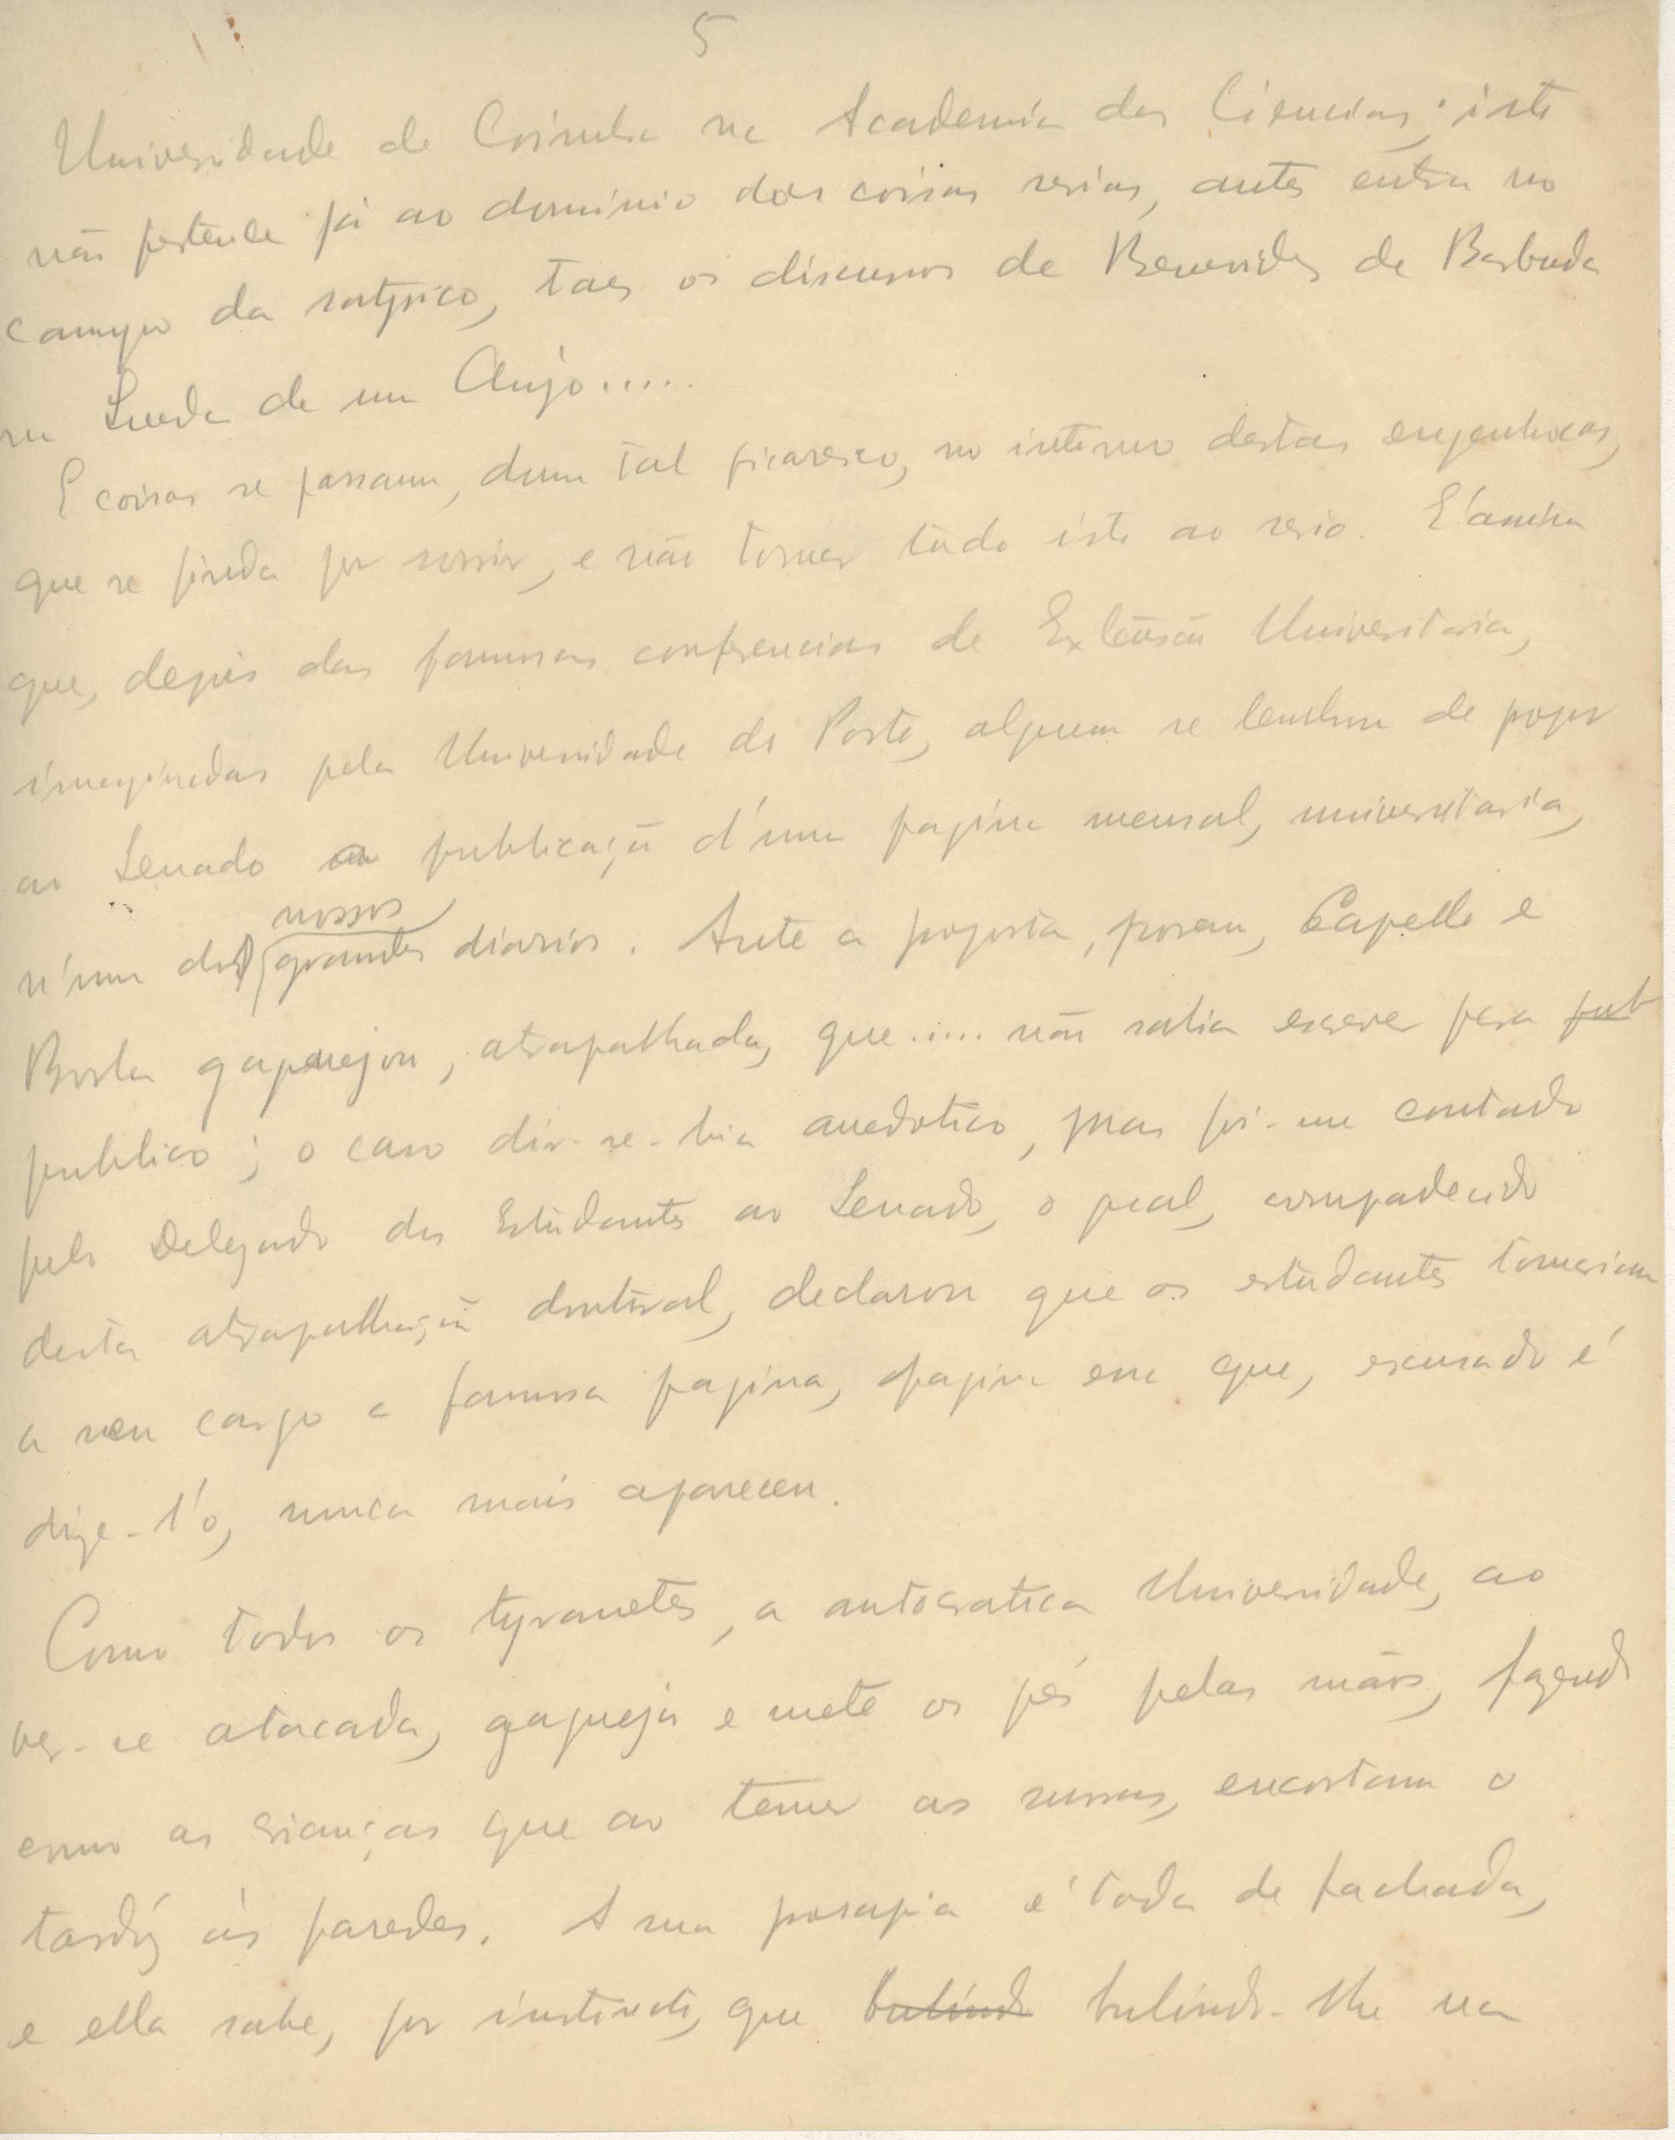 5
Universidade de Coimbra na Academia das Ciencias; isto
não pertence já ao dominio das coisas serias, antes entra no
campo da satyrico, taes os discursos de Benevides de Barbuda
na Queda de um Anjo.....
E coisas se passam, dum tal picaresco, no interno destas engenhocas,
que se finda por sorrir, e não tomar tudo isto ao serio. E' assim
que, depois das famosas conferencias de Extensão Universitaria,
imaginadas pela Universidade do Porto, alguem se lembrou de propor
ao Senado a publicação d'uma pagina mensal, universitaria,
nossos
n'um dos grandes diarios. Ante a proposta, porem, Capello e
Borla gaguejou, atrapalhada, que ..... não sabia escrever para pub
publico; o caso dir-se-hia anedotico, mas foi-me contado
pelo Delegado dos Estudantes ao Senado, o qual, compadecido
desta atrapalhação doutoral, declarou que os estudantes tomariam
a seu cargo a famosa pagina, pagina em que, escusado é
dize-l'o, nunca mais apareceu.
Como todos os tyranetes, a autocratica Universidade, ao
ver-se atacada, gagueja e mete os pés pelas mãos, fazend
como as crianças que ao temer as surras, encostam o
tardóz ás paredes. A sua prosapia é toda de fachada,
e ella sabe, por instincto, que bulindo bulindo-lhe na